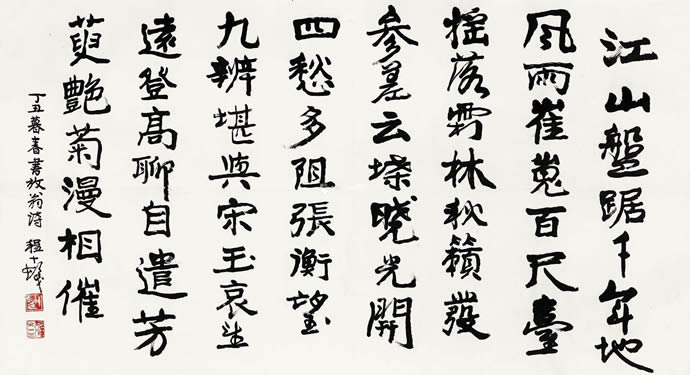 江山盤踞千年地
風雨崔嵬百尺臺
摇落霜林秋籟發
参差云堞曉光開
四愁多阻張衡望
九辨堪與宋玉哀望
遠登高聊自遣芳
萸艷菊漫相催
丁丑暮春書放翁詩 程十髮